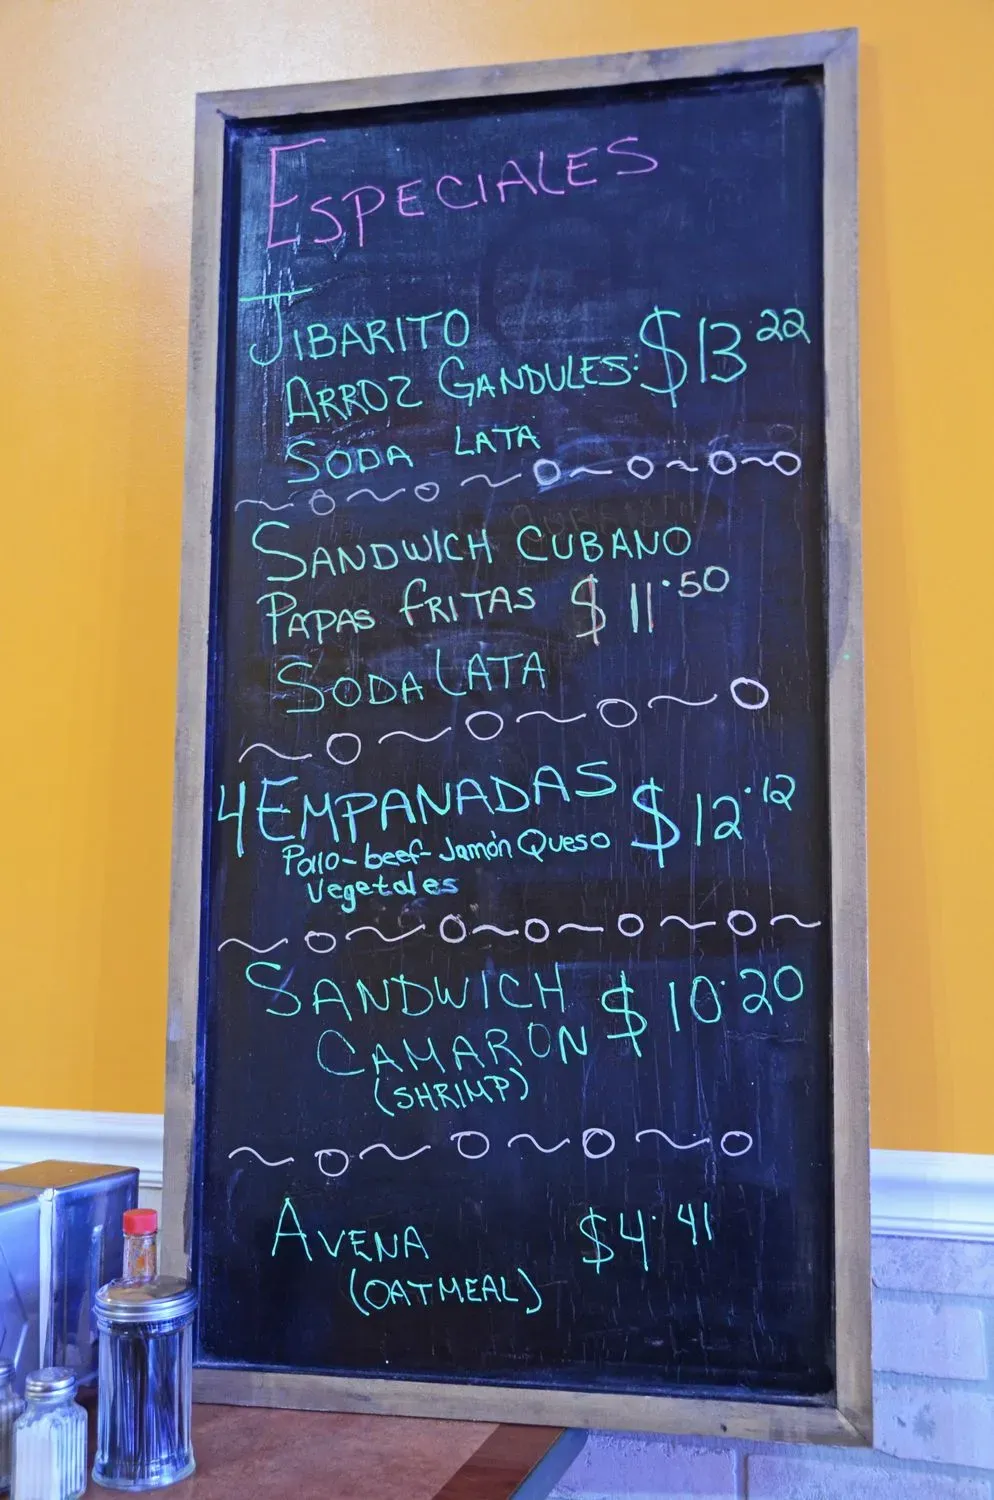 ESPECIALES
JIBARITO
ARROZ GANDULES: $13.22
SODA LATA
SANDWICH CUBANO
PAPAS FRITAS $11.50
SODA LATA
4 EMPANADAS $12.12
Pollo-beef-Jamón Queso
Vegetales
SANDWICH $10.20
CAMARON
(SHRIMP)
AVENA $4.41
(OATMEAL)